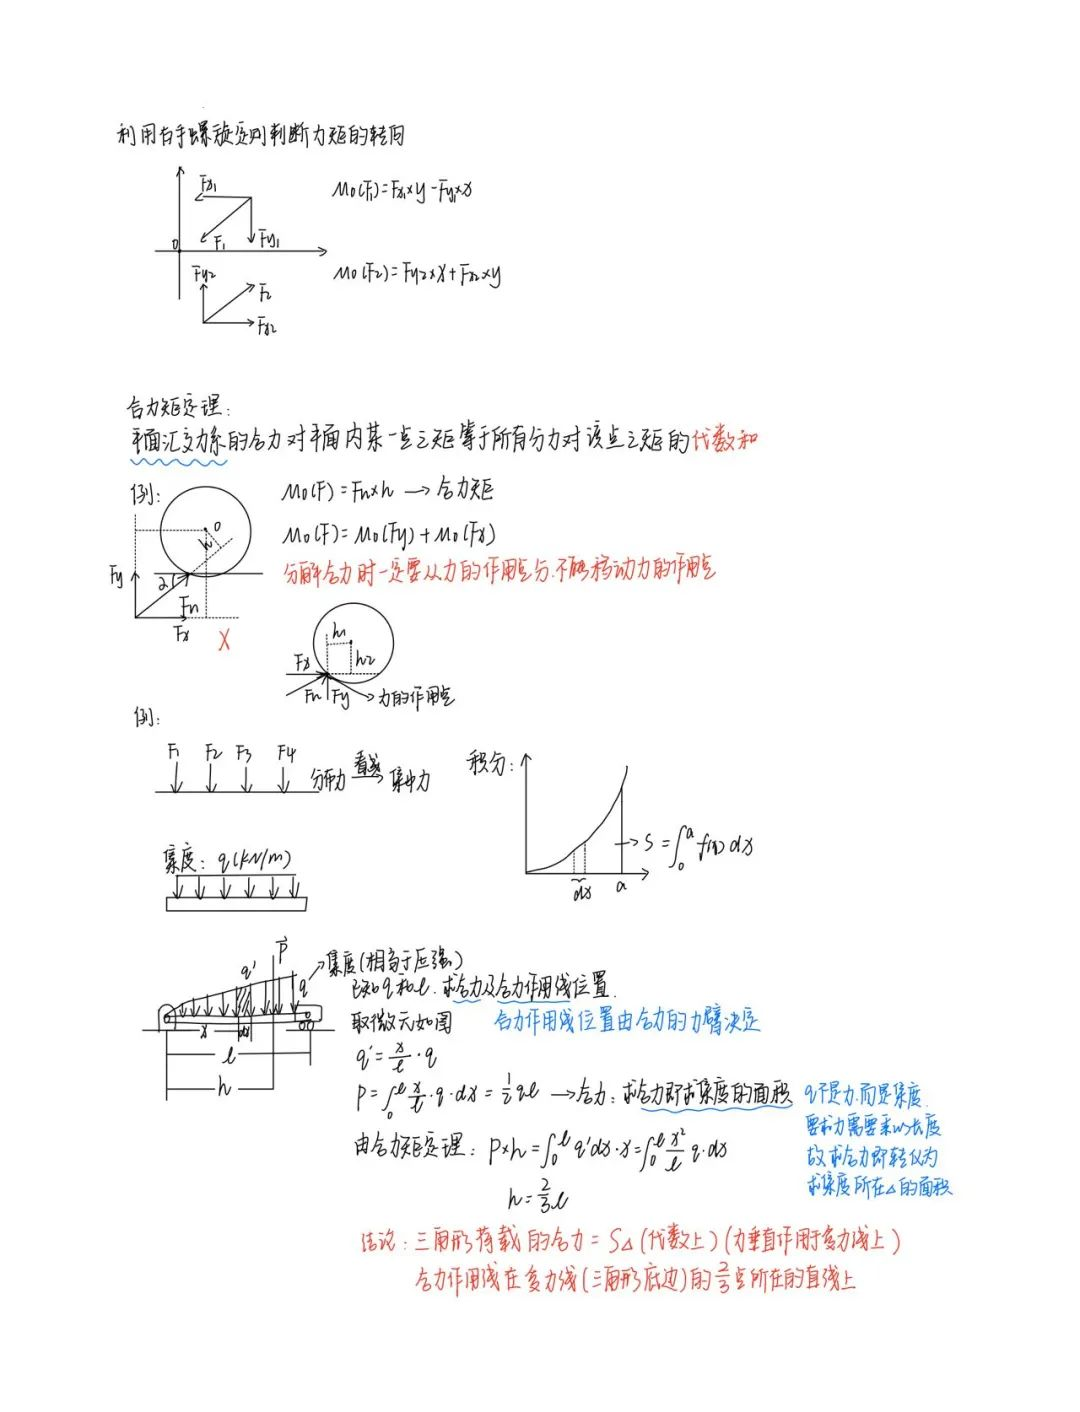 利用右手螺旋定则判断力矩的转向
Fx₁
Mo(F₁)=Fx₁×y-Fy₁×x
O
F₁
Fy₁
Fy₂
Mo(F₂)=Fy₂×x+Fx₂×y
F₂
Fx₂
合力矩定理:
平面汇交力系的合力对平面内某一点之矩等于所有分力对该点之矩的代数和
例:
Mo(F)=Fn×h → 合力矩
O
h
Mo(F)=Mo(Fy)+Mo(Fx)
分解合力时一定要从力的作用点分.不能移动力的作用点
Fy
2
Fn
Fx
X
h₁
h₂
Fx
Fn
Fy
力的作用点
例:
F₁ F₂ F₃ F₄
分布力 看成→ 集中力
积分:
S=∫₀ᵃ f(x)dx
dx
a
集度: q(kN/m)
P
q'
q
集度(相当于压强)
已知q和l.求合力及合力作用线位置.
x
dx
取微元如图
合力作用线位置由合力的力臂决定
l
h
q'=x/l·q
P=∫₀ˡ x/l·q·dx=1/2ql → 合力:求合力即求集度的面积
q不是力.而是集度.
要求力需要乘以长度
故求合力即转化为
求集度所在△的面积
由合力矩定理: P×h=∫₀ˡ q'dx·x=∫₀ˡ x²/l q·dx
h=2/3l
结论:三角形荷载的合力=S△(代数上)(力垂直作用于受力线上)
合力作用线在受力线(三角形底边)的2/3点所在的直线上